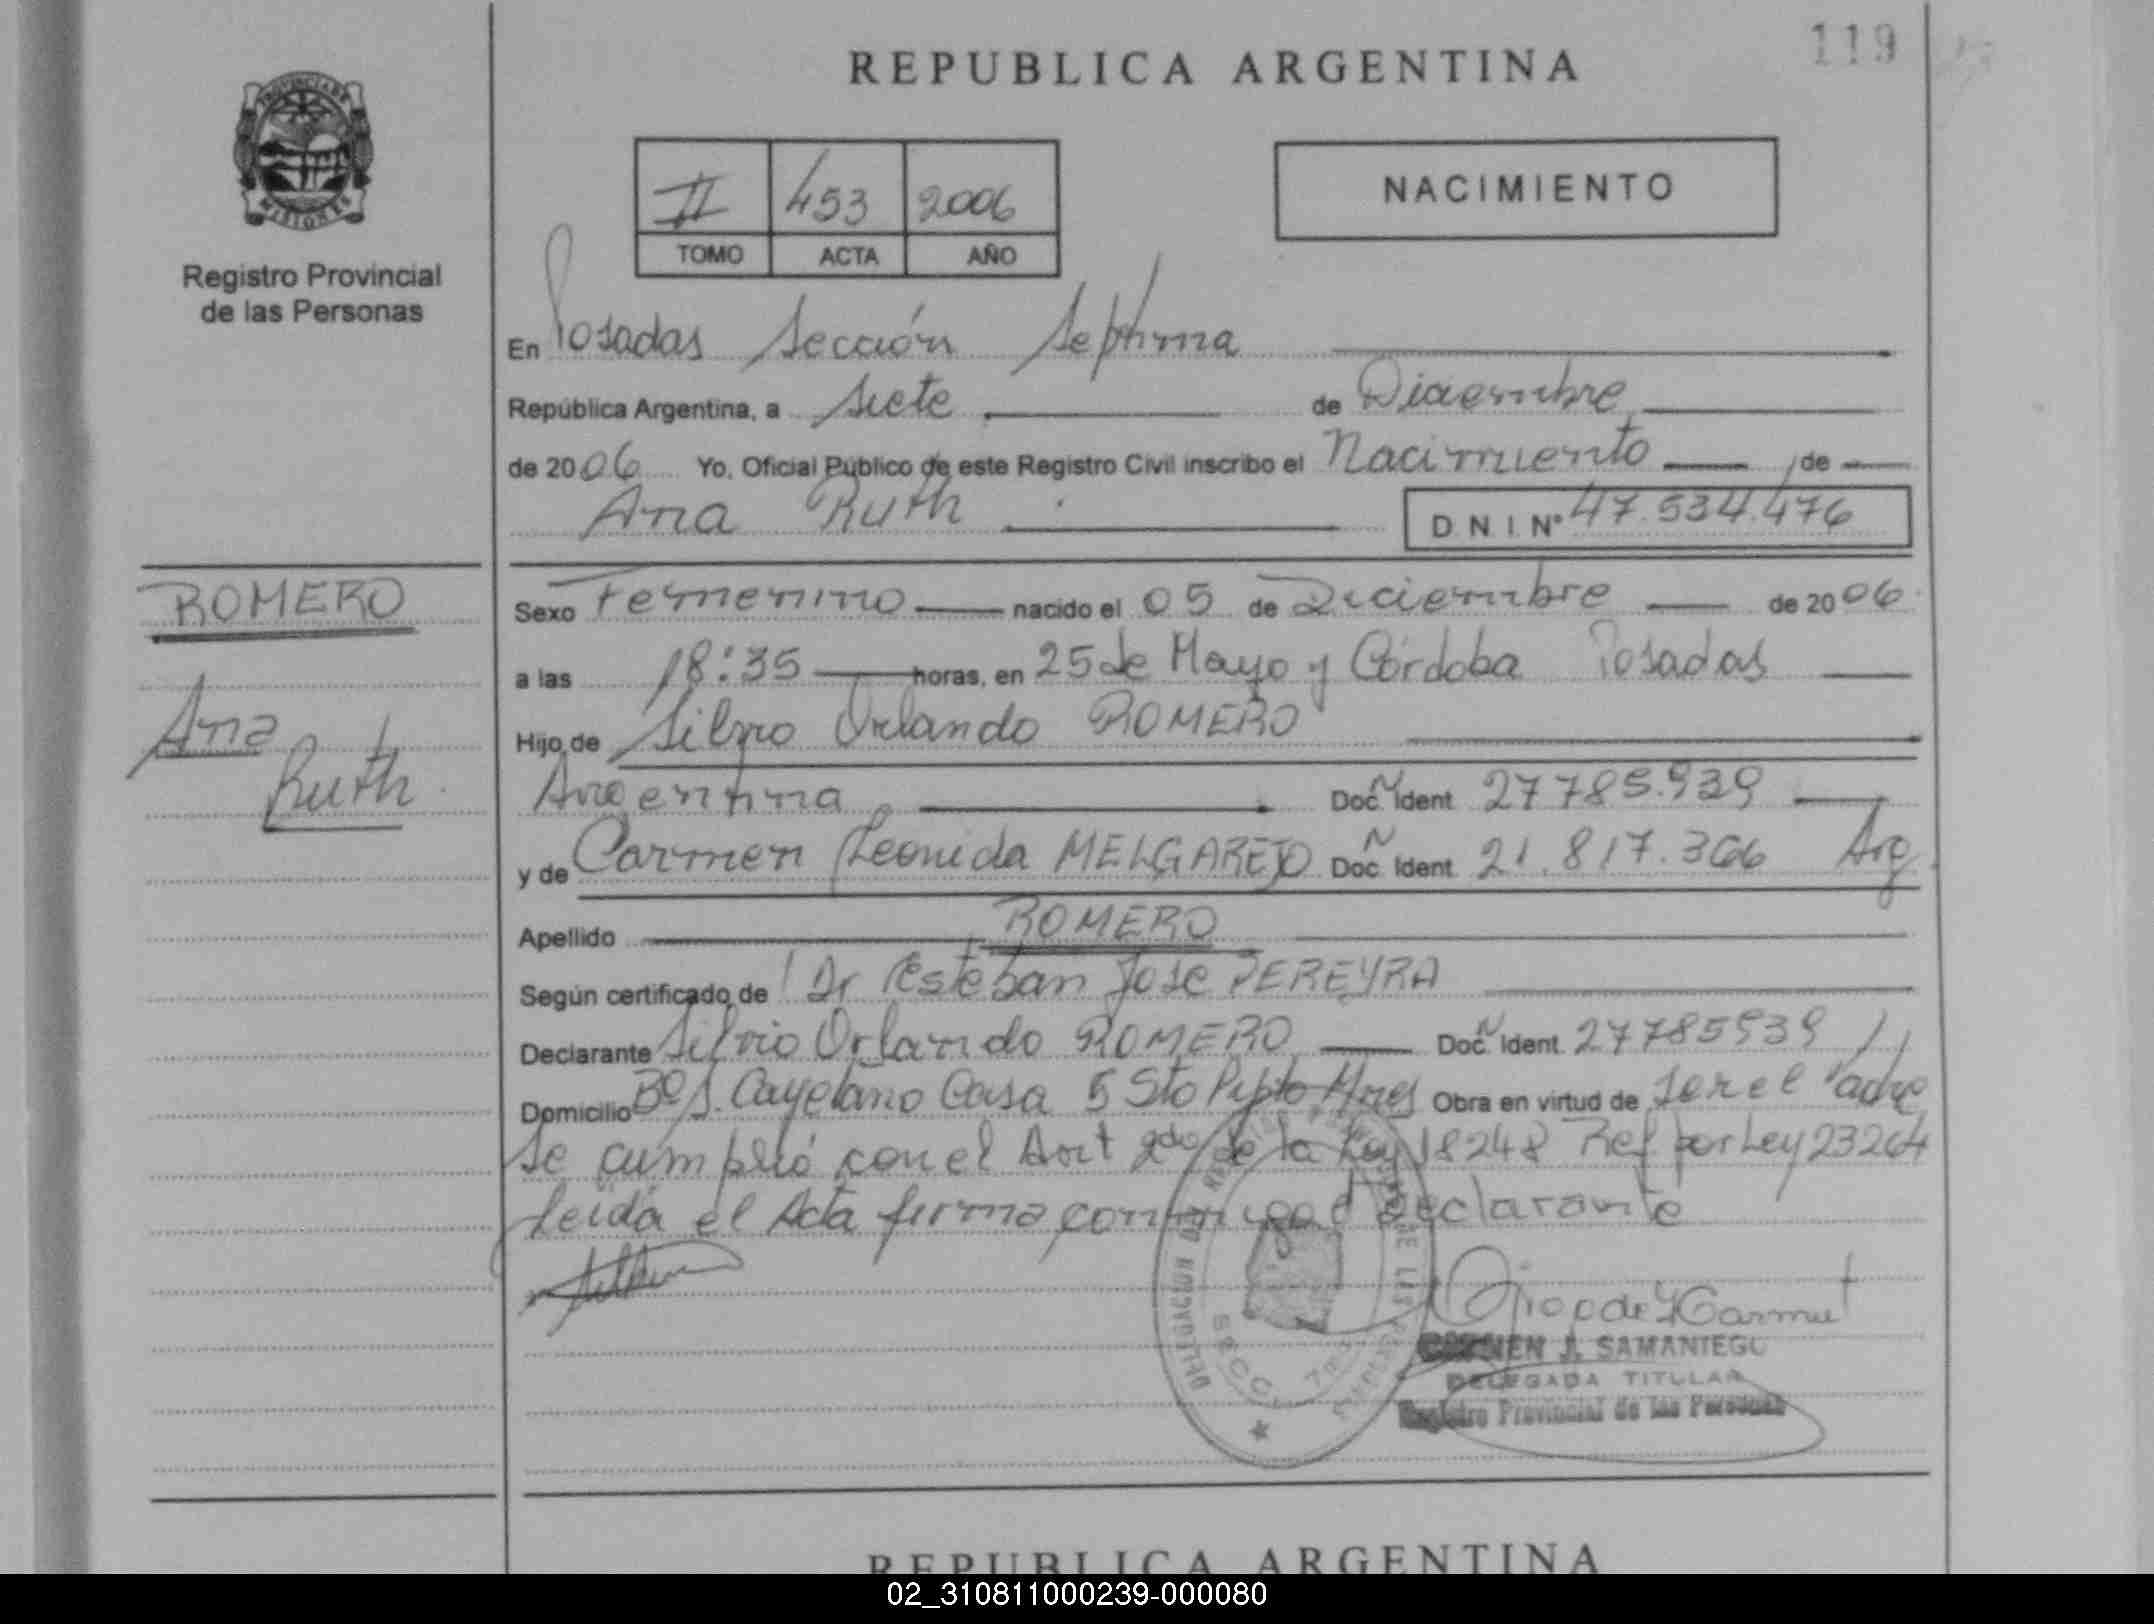 119
REPUBLICA ARGENTINA
PROVINCIA DE
MISIONES
Registro Provincial
de las Personas
II 453 2006
TOMO ACTA AÑO
NACIMIENTO
En Posadas Sección Septima
República Argentina, a siete de Diciembre
de 2006 Yo, Oficial Público de este Registro Civil inscribo el Nacimiento de
Ana Ruth
D.N.I. Nº 47.534.476
ROMERO
Ana
Ruth
Sexo Femenino nacido el 05 de Diciembre de 2006
a las 18:35 horas, en 25 de Mayo y Córdoba Posadas
Hijo de Silvio Orlando ROMERO
Argentina Doc. Ident. 27785.939
y de Carmen Leonida MELGAREJO Doc. Ident. 21.817.366 Arg.
Apellido ROMERO
Según certificado de Dr Esteban Jose PEREYRA
Declarante Silvio Orlando ROMERO Doc. Ident. 27785939
Domicilio Bº S. Cayetano Casa 5 Sto Pipto Mnes Obra en virtud de ser el Padre
Se cumplió con el Art 2do de la Ley 18248 Ref por Ley 23264
Leida el Acta firma conmigo el declarante
SECC. 7ma
CARMEN J. SAMANIEGO
DELEGADA TITULAR
Registro Provincial de las Personas
REPUBLICA ARGENTINA
02_310811000239-000080